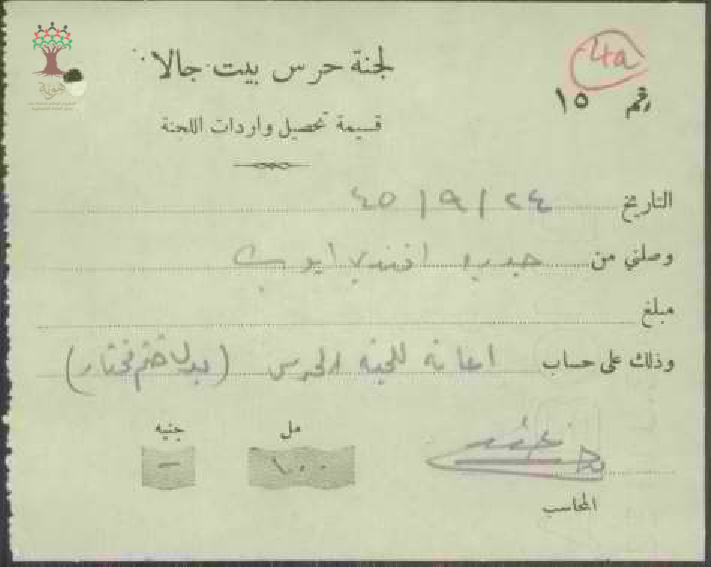 هوية
لجنة حرس بيت جالا
4a
رقم ١٥
قسيمة تحصيل واردات اللجنة
التاريخ ٢٤ / ٩ / ٤٥
وصلني من افندي ايوب
مبلغ
وذلك على حساب اعانة للجنة الحرس (بدل ختم مختار)
جنيه مل
— ١٠٠
المحاسب